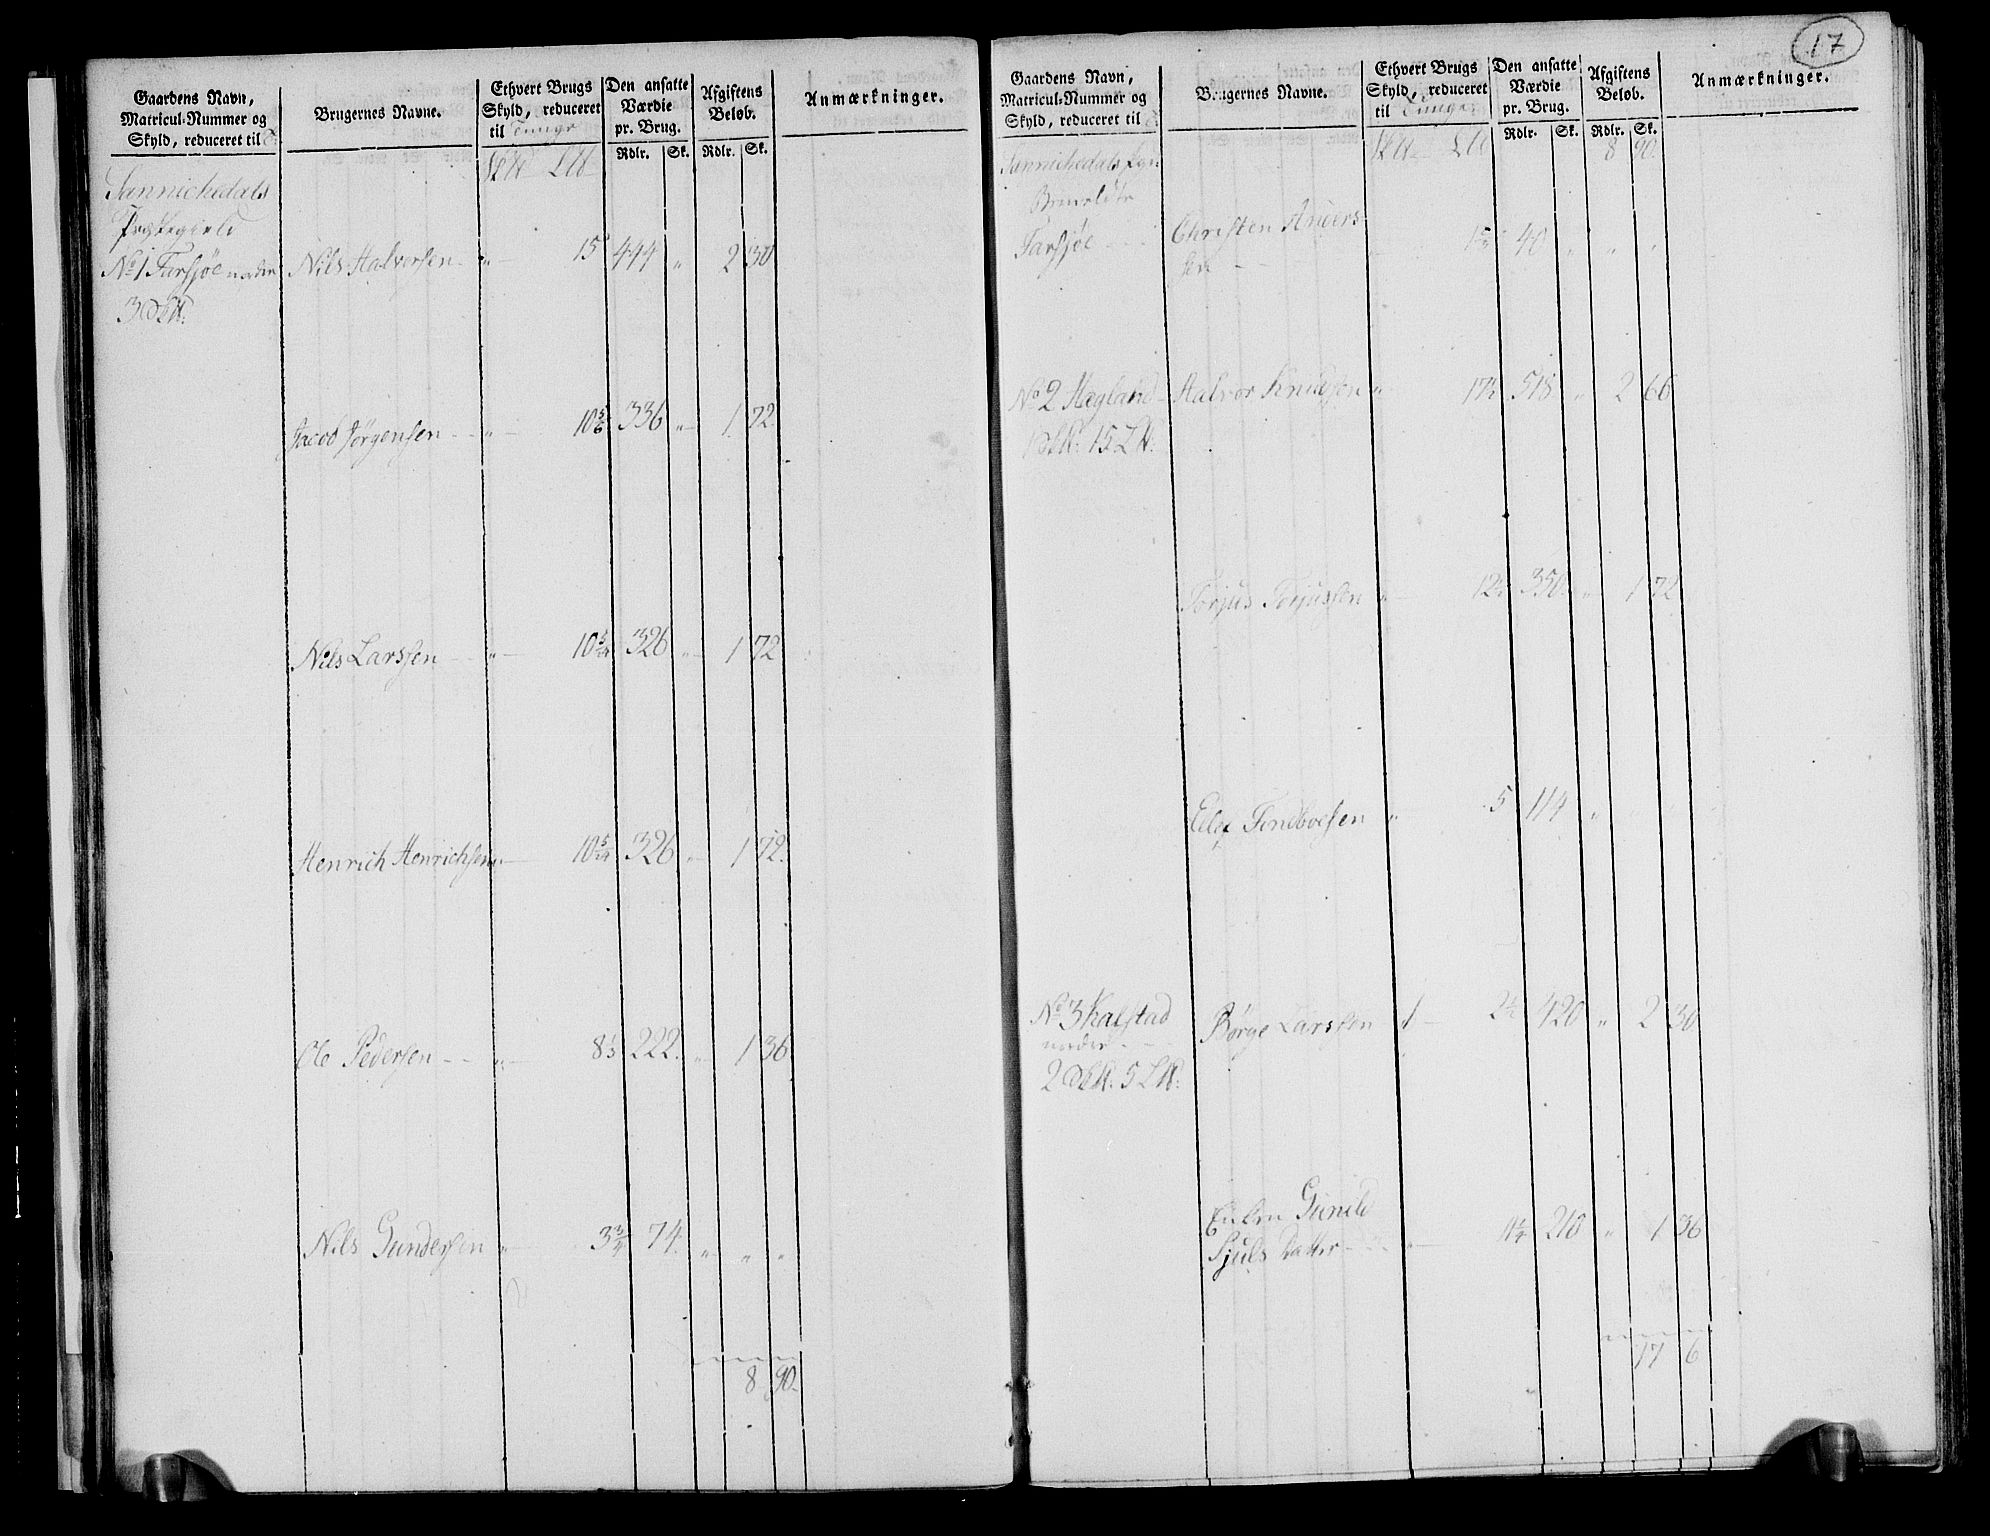 Gaardens Navn,
Matricul-Nummer og
Skyld, reduceret til
Brugernes Navne.
Ethvert Brugs
Skyld, reduceret
til Tunge
Den ansatte
Værdie
pr. Brug.
Rdlr. Sk.
Afgiftens
Beløb.
Rdlr. Sk.
Anmærkninger.
Sannickedals
Præstegield
No 1 Farsjøe nedre Nils Halvorsen " 15 444 " 2 30
3
Jacob Jørgensen " 10 5/6 336 " 1 72
Nils Larssen " 10 5/24 326 " 1 72
Henrich Henrichsen " 10 5/24 326 " 1 72.
Ole Pedersen " 8 1/3 222. " 1 36
Nils Gundersen " 3 3/4 74. " " "
8 90.
17
Gaardens Navn,
Matricul-Nummer og
Skyld, reduceret til
Brugernes Navne.
Ethvert Brugs
Skyld, reduceret
til Tunge
Den ansatte
Værdie
pr. Brug.
Rdlr. Sk.
Afgiftens
Beløb.
Rdlr. Sk.
Anmærkninger.
8 90.
Sannickedals
Farsjøe Christen Anders-
sen 40 " " "
No 2 Hegland Halvor Knudsen " 17 1/2 518 " 2 66
15
Torjus Torjussen " 12 350. " 1 72
5 114 "
No 3 Kalstad Børge Larssen 1 2 1/2 420 " 2 30
nedre
2 5
Enken Gunild
Sjuls Datter " 11 1/4 210 " 1 36
17 6